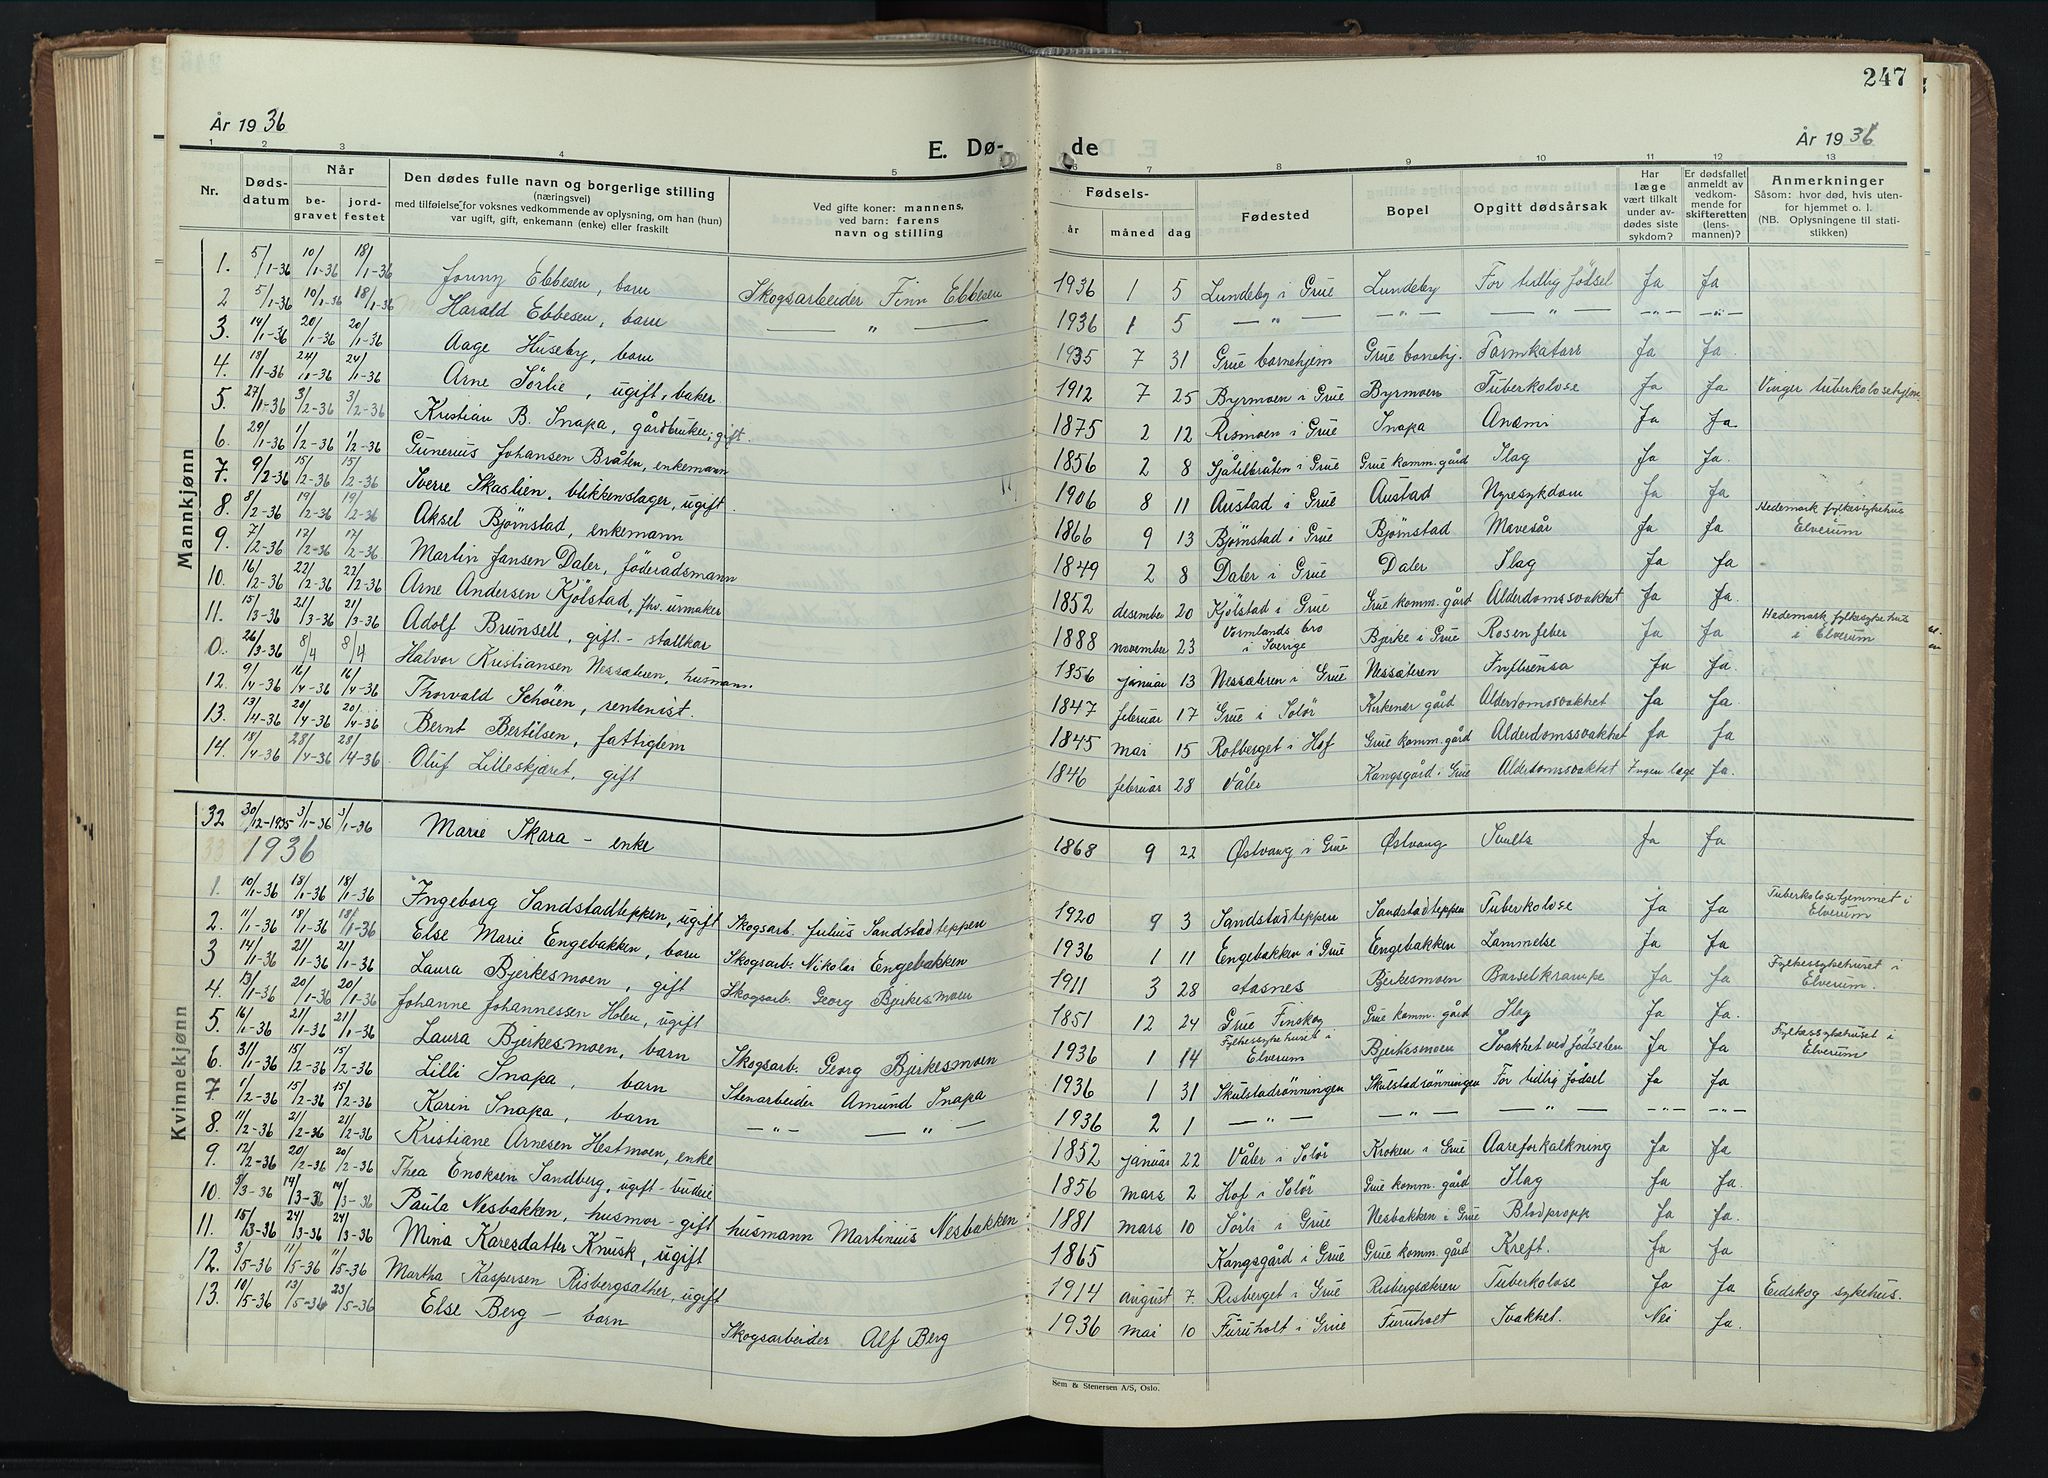 247
År 1936
E. Dø-
de
År 1936
1 2 3 4 5
6 7 8 9 10 11 12 13
Nr.
Døds-
datum
Når
be-
gravet
jord-
festet
Den dødes fulle navn og borgerlige stilling
(næringsvei)
med tilføielse for voksnes vedkommende av oplysning, om han (hun)
var ugift, gift, enkemann (enke) eller fraskilt
Ved gifte koner: mannens,
ved barn: farens
navn og stilling
Fødsels-
år måned dag
Fødested
Bopel
Opgitt dødsårsak
Har
læge
vært tilkalt
under av-
dødes siste
sykdom?
Er dødsfallet
anmeldt av
vedkom-
mende for
skifteretten
(lens-
mannen)?
Anmerkninger
Såsom: hvor død, hvis uten-
for hjemmet o. l.
(NB. Oplysningene til stati-
stikken)
Mannkjønn
1. 5/1-36 10/1-36 18/1-36 Jonny Ebbesen, barn Skogsarbeider Finn Ebbesen 1936 1 5 Lundeby i Grue Lundeby For tidlig födsel Ja Ja
2 5/1-36 10/1-36 18/1-36 Harald Ebbesen, barn — " — 1936 1 5 — " — — " — — " — — " — — " —
3. 14/1-36 20/1-36 20/1-36 Aage Huseby, barn 1935 7 31 Grue barnehjem Grue barnehj. Tarmkatarr Ja Ja
4. 18/1-36 24/1-36 24/1-36 Arne Sörlie, ugift, baker 1912 7 25 Byrmoen i Grue Byrmoen Tuberkolose Ja Ja Vinger tuberkolosehjem
5. 27/1-36 3/2-36 3/2-36 Kristian B. Snapa, gårdbruker, gift. 1875 2 12 Rismoen i Grue Snapa Anæmi Ja Ja
6. 29/1-36 1/2-36 1/2-36 Gunerius Johansen Bråten, enkemann 1856 2 8 Sjåtilbråten i Grue Grue komm. gård Slag Ja Ja.
7. 9/2-36 15/2-36 15/2-36 Sverre Skaslien, blikkenslager, ugift. 1906 8 11 Austad i Grue Austad Nyresykdom Ja Ja Hedemark fylkessykehus
Elverum
8. 8/2-36 19/2-36 19/2-36 Aksel Bjørnstad, enkemann 1866 9 13 Bjørnstad i Grue Bjørnstad Mavesår Ja Ja
9. 7/2-36 17/2-36 17/2-36 Martin Jansen Daler, föderådsmann 1849 2 8 Daler i Grue Daler Slag Ja Ja
10. 16/2-36 22/2-36 22/2-36 Arne Andersen Kjölstad, fhv. urmaker 1852 desember 20 Kjölstad i Grue Grue komm. gård Alderdomssvakhet Ja Ja.
11. 15/3-36 21/3-36 21/3-36 Adolf Brunsell, gift - stallkar 1888 november 23 Vermlands bro
i Sverige Bjerke i Grue Rosenfeber Ja Ja Hedemark fylkesykehus
i Elverum
0. 26/3-36 8/4 8/4 Halvor Kristiansen Nessæteren, husmann. 1856 januar 13 Nessæteren i Grue Nessæteren Influensa Ja Ja.
12. 9/4-36 16/4-36 16/4-36 Thorvald Schöien, rentenist. 1847 februar 17 Grue i Solör Kirkenær gård Alderdomssvakhet Ja Ja
13. 13/4-36 20/4-36 20/4-36 Bernt Bertilsen, fattiglem 1845 mai 15 Rotberget i Hof Grue komm. gård Alderdomssvakhet Ja Ja
14. 18/4-36 28/4-36 28/4-36 Oluf Lilleskjæret, gift 1846 februar 28 Våler Kongsgård i Grue Alderdomssvakhet Ingen læge Ja.
Kvinnekjønn
32 30/12-1935 3/1-36 3/1-36 Marie Skara - enke 1868 9 22 Østvang i Grue Østvang Svulst Ja Ja
33 1936
1. 10/1-36 18/1-36 18/1-36 Ingeborg Sandstadteppen, ugift Skogsarb. Julius Sandstadteppen 1920 9 3 Sandstadteppen Sandstadteppen Tuberkolose Ja Ja Tuberkolosehjemmet i
Elverum
2. 11/1-36 18/1-36 18/1-36 Else Marie Engebakken, barn Skogsarb. Nikolai Engebakken 1936 1 11 Engebakken i Grue Engebakken Lammelse Ja Ja
3 14/1-36 21/1-36 21/1-36 Laura Bjerkesmoen, gift Skogsarb. Georg Bjerkesmoen 1911 3 28 Aasnes Bjerkesmoen Barselkrampe Ja Ja Fylkessykehuset i
Elverum.
4. 13/1-36 20/1-36 20/1-36 Johanne Johannessen Holen, ugift 1851 12 24 Grue Finskog Grue komm. gård Slag Ja Ja.
5. 16/1-36 21/1-36 21/1-36 Laura Bjerkesmoen, barn Skogsarb. Georg Bjerkesmoen 1936 1 14 Fylkessykehuset i
Elverum Bjerkesmoen Svakhet ved födselen Ja Ja Fylkessykehuset i
Elverum
6. 31/1-36 15/2-36 15/2-36 Lilli Snapa, barn Stenarbeider Amund Snapa 1936 1 31 Skulstadrönningen Skulstadrönningen For tidlig fødsel Ja Ja
7 1/2-36 15/2-36 15/2-36 Karin Snapa, barn — " — — " — 1936 2 1 — " — — " — — " — — " — — " —
8. 11/2-36 21/2-36 21/2-36 Kristiane Arnesen Hestmoen, enke 1852 januar 22 Våler i Solör Kroken i Grue Aareforkalkning Ja Ja
9. 12/2-36 20/2-36 20/2-36 Thea Enoksen Sandberg, ugift - budeie 1856 mars 2 Hof i Solör Grue komm. gård Slag Ja Ja.
10. 9/3-36 14/3-36 14/3-36 Paula Nesbakken, husmor - gift husmann Martinius Nesbakken 1881 mars 10 Sörli i Grue Nesbakken i Grue Blodpropp Ja Ja.
11. 15/3-36 24/3-36 24/3-36 Mina Karesdatter Knusk, ugift 1865 Kongsgård i Grue Grue komm. gård Kreft. Ja Ja
12. 3/5-36 11/5-36 11/5-36 Martha Kaspersen Risbergsæther, ugift 1914 august 7. Risberget i Grue Risbergsæteren Tuberkolose Ja Ja Eidskog sykehus.
13. 10/5-36 13/5-36 23/5-36 Else Berg - barn Skogsarbeider Alf Berg 1936 mai 10 Furuholt i Grue Furuholt Svakhet. Nei Ja.
Sem & Stenersen A/S, Oslo.